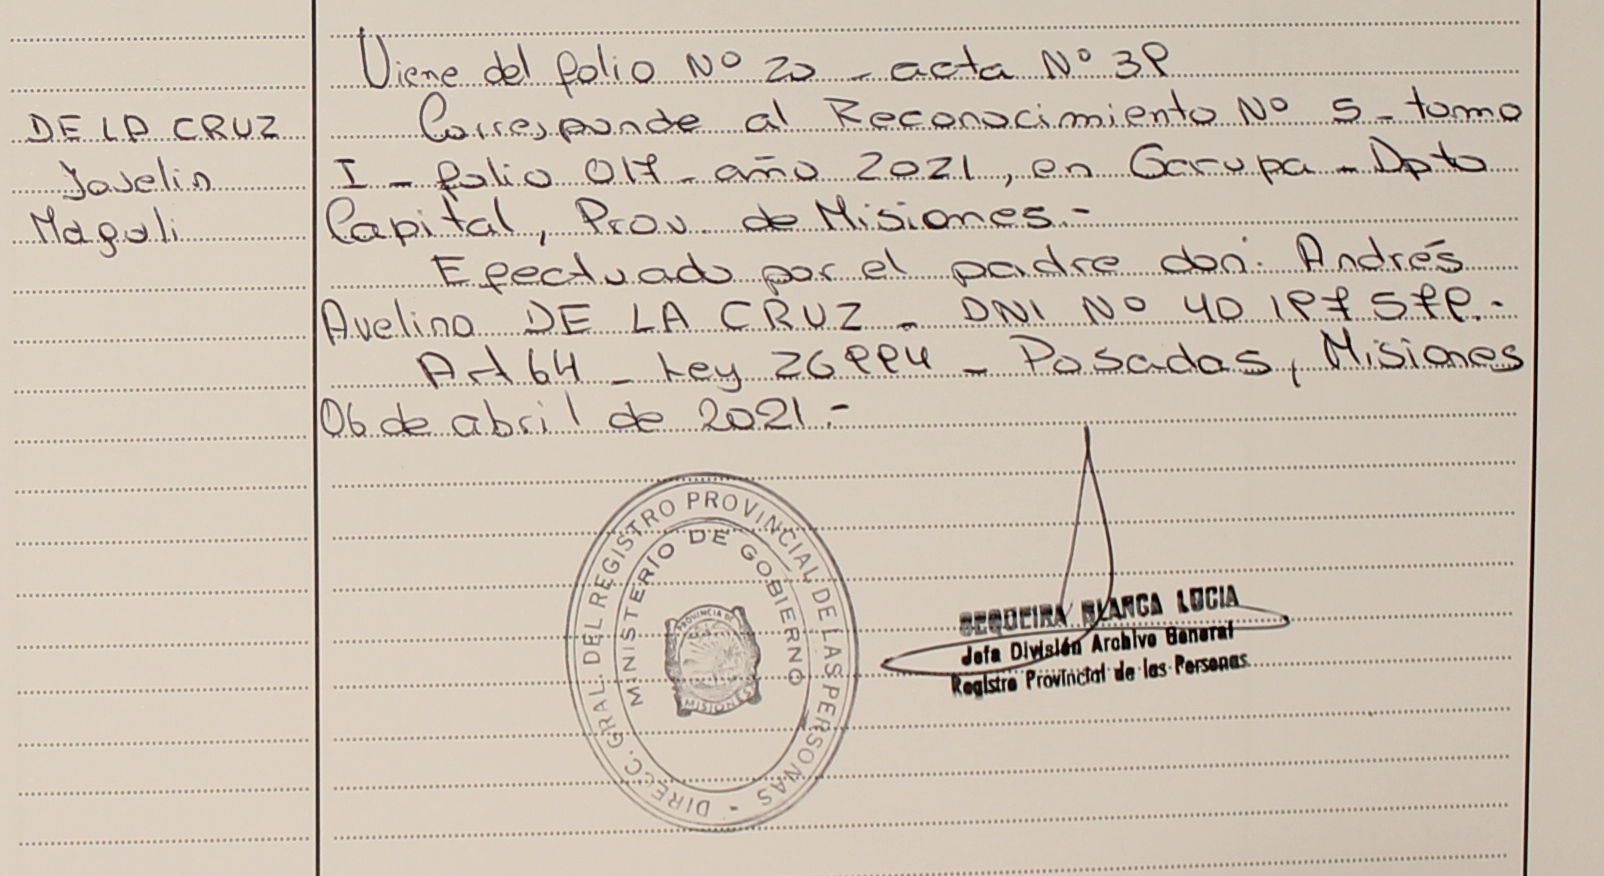 Viene del folio Nº 20 - acta Nº 39
DE LA CRUZ
Joselin
Magali
Corresponde al Reconocimiento Nº 5 - tomo
I - folio 017 - año 2021, en Garupa - Dpto
Capital, Prov. de Misiones.-
Efectuado por el padre don: Andrés
Avelino DE LA CRUZ - DNI Nº 40 197 579.-
Art 64 - Ley 26994 - Posadas, Misiones
06 de abril de 2021.-
DIRECC. GRAL. DEL REGISTRO PROVINCIAL DE LAS PERSONAS -
MINISTERIO DE GOBIERNO
PROVINCIA DE
MISIONES
SEQUEIRA BLANCA LUCIA
Jefa División Archivo General
Registro Provincial de las Personas